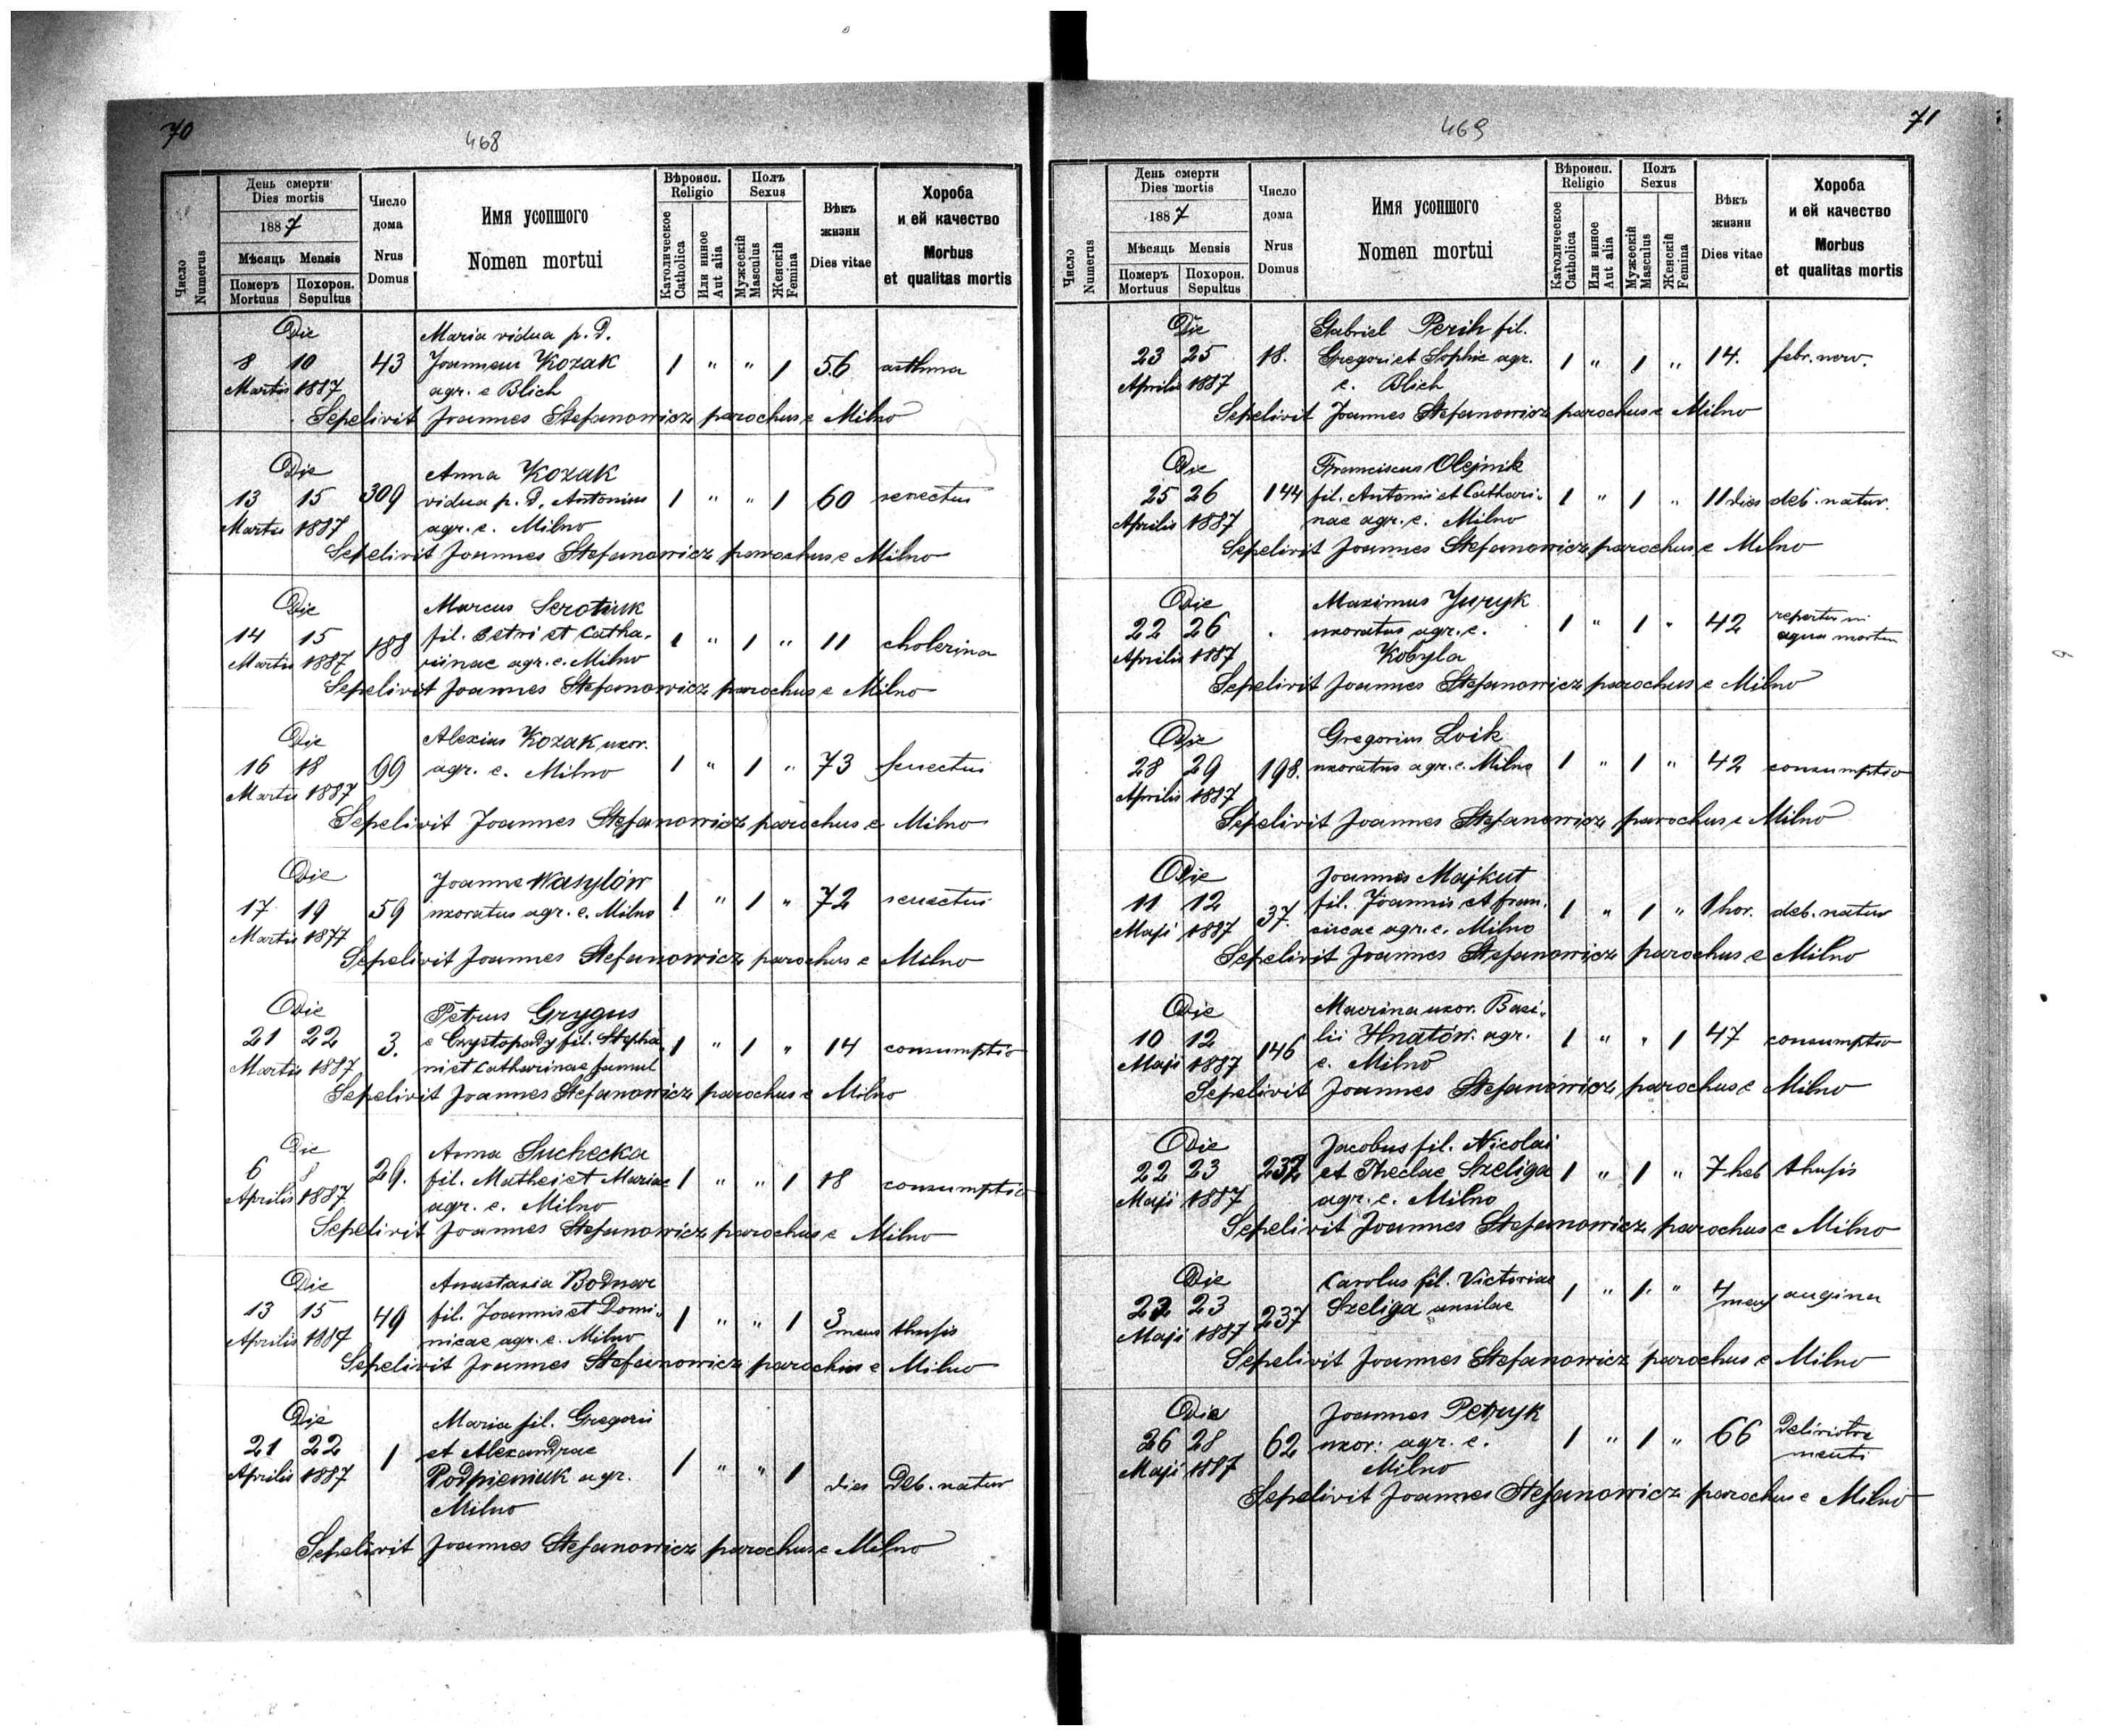 70
468
Число
Numerus
День смерти
Dies mortis
1887
Мѣсяць Mensis
Померъ
Mortuus
Похорон.
Sepultus
Число
дома
Nrus
Domus
Имя усопшого
Nomen mortui
Вѣроисп.
Religio
Католическое
Catholica
Или инное
Aut alia
Полъ
Sexus
Мужескій
Masculus
Женскій
Femina
Вѣкъ
жизни
Dies vitae
Хороба
и ей качество
Morbus
et qualitas mortis
Die Maria vidua p. d.
8 10 43 Joannem Kozak 1 " " 1 56 asthma
Martii 1887 agr. e Blich
Sepelivit Joannes Stefanowicz parochus e Milno
Die Anna Kozak
13 15 309 vidua p. d. Antonius 1 " " 1 60 senectus
Martii 1887 agr. e. Milno
Sepelivit Joannes Stefanowicz parochus e Milno
Die Marcus Serotiuk
14 15 188 fil. Petri et Catha- 1 " 1 " 11 cholerina
Martii 1887 rinae agr. e. Milno
Sepelivit Joannes Stefanowicz parochus e Milno
Die Alexius Kozak uxor.
16 18 99 agr. e. Milno 1 " 1 " 73 senectus
Martii 1887
Sepelivit Joannes Stefanowicz parochus e Milno
Die Joanne Wasylów
17 19 59 uxoratus agr. e. Milno 1 " 1 " 72 senectus
Martii 1877
Sepelivit Joannes Stefanowicz parochus e Milno
Die Petrus Grygus
21 22 3. e Czystopady fil. Stepha- 1 " 1 " 14 consumptio
Martii 1887 ni et Catharinae famul
Sepelivit Joannes Stefanowicz parochus e Milno
Die Anna Suchecka
6 8 29. fil. Mathei et Mariae 1 " " 1 18 consumptio
Aprilis 1887 agr. e. Milno
Sepelivit Joannes Stefanowicz parochus e Milno
Die Anastasia Bodnar
13 15 49 fil. Joannis et Domi- 1 " " 1 3 mens thusis
Aprilis 1887 nicae agr. e. Milno
Sepelivit Joannes Stefanowicz parochus e Milno
Die Maria fil. Gregorii
21 22 1 et Alexandrae
Aprilis 1887 Podpieniuk agr. 1 " " 1 dies Deb. natur
Milno
Sepelivit Joannes Stefanowicz parochus e Milno
71
469
Число
Numerus
День смерти
Dies mortis
1887
Мѣсяць Mensis
Померъ
Mortuus
Похорон.
Sepultus
Число
дома
Nrus
Domus
Имя усопшого
Nomen mortui
Вѣроисп.
Religio
Католическое
Catholica
Или инное
Aut alia
Полъ
Sexus
Мужескій
Masculus
Женскій
Femina
Вѣкъ
жизни
Dies vitae
Хороба
и ей качество
Morbus
et qualitas mortis
Die Gabriel Perih fil.
23 25 18. Gregori et Sophie agr. 1 " 1 " 14. febr. nerv.
Aprilis 1887 e. Blich
Sepelivit Joannes Stefanowicz parochus e Milno
Die Franciscus Olejnik
25 26 144 fil. Antoni et Cathari- 1 " 1 " 11 dies deb. natur.
Aprilis 1887 nae agr. e. Milno
Sepelivit Joannes Stefanowicz parochus e Milno
Die Maximus Juryk
22 26 . uxoratus agr. e. 1 " 1 " 42 repertus in
Aprilis 1887 Kobyla aqua mortuu
Sepelivit Joannes Stefanowicz parochus e Milno
Die Gregorius Loik
28 29 198. uxoratus agr. e. Milno 1 " 1 " 42 consumptio
Aprilis 1887
Sepelivit Joannes Stefanowicz parochus e Milno
Die Joannes Majkut
11 12 37. fil. Joannis et fran- 1 " 1 " 1 hor. deb. natur
Maji 1887 ciscae agr. e. Milno
Sepelivit Joannes Stefanowicz parochus e Milno
Die Macrina uxor. Basi-
10 12 146 lii Hnatów. agr. 1 " " 1 47 consumptio
Maji 1887 e. Milno
Sepelivit Joannes Stefanowicz parochus e Milno
Die Jacobus fil. Nicolai
22 23 237 et Theclae Szeliga 1 " 1 " 7 heb thusis
Maji 1887 agr. e. Milno
Sepelivit Joannes Stefanowicz parochus e Milno
Die Carolus fil. Victoriae
22 23 237 Szeliga ansilae 1 " 1. " 4 mens angina
Maji 1887
Sepelivit Joannes Stefanowicz parochus e Milno
Die Joannes Petryk
26 28 62 uxor. agr. e. 1 " 1 " 66
Maji 1887 Milno
Sepelivit Joannes Stefanowicz parochus e Milno